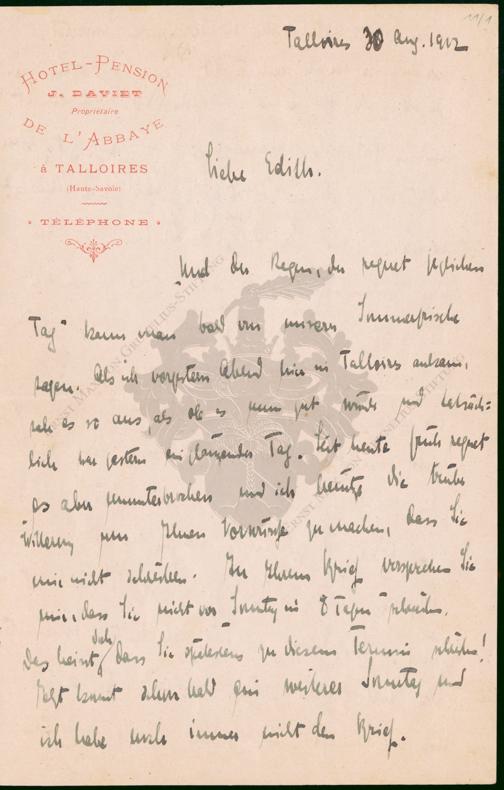 11/1
Talloires 30 Aug. 1912
HOTEL-PENSION
J. DAVIET
Propriétaire
DE L'ABBAYE
à TALLOIRES
(Haute-Savoie)
TÉLÉPHONE
Liebe Edith.
"Und der Regen, der regnet jeglichen
Tag" kann man bald von unserer Sommerfrische
sagen. Als ich vorgestern Abend hier in Talloires ankam,
sah es so aus, als ob es nun gut würde und tatsäch-
lich war gestern ein glänzender Tag. Seit heute früh regnet
es aber ununterbrochen und ich benütze die trübe
Witterung um Ihnen Vorwürfe zu machen, dass Sie
mir nicht schreiben. In Ihrem Brief versprechen Sie
mir, dass Sie nicht vor "Sonntag in 8 Tagen" schreiben.
Das heisst doch, dass Sie spätestens zu diesem Termin schreiben!
Jetzt kommt schon bald ein weiterer Sonntag und
ich habe noch immer nicht den Brief.
ERNST MAX VON GRUNELIUS-STIFTUNG